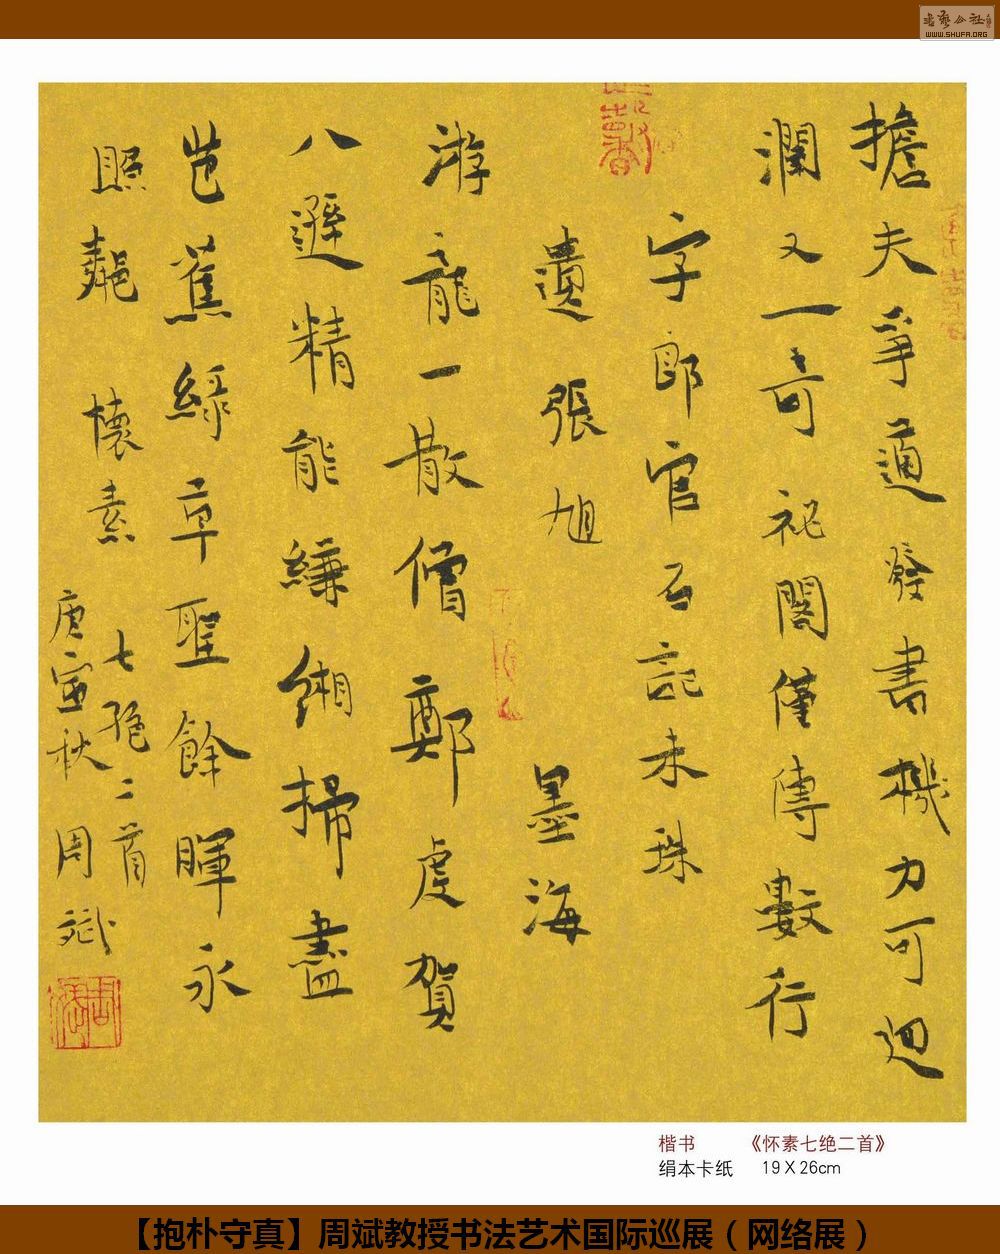 書藝公社
WWW.SHUFA.ORG
擔夫爭道發書機力可迴
瀾又一奇祕閣僅傳數行
字郎官石記未珠
遺張旭 墨海
游龍一散僧鄭虔賀
八遜精能縑緗掃盡
芭蕉綠草聖餘暉永
照 懷素 七絕二首
庚寅秋 周斌
楷书 《怀素七绝二首》
绢本卡纸 19X26cm
【抱朴守真】周斌教授书法艺术国际巡展（网络展）